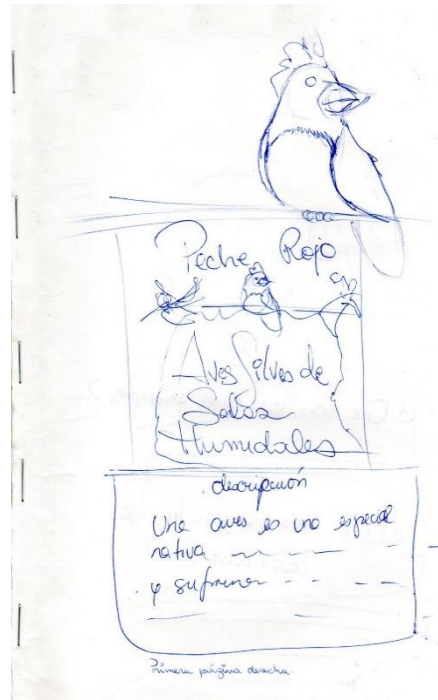 Peche Rojo
Aves Silves de
Sobas
Humedales
descripción
Una aves es una especial
nativa
y sufrimer
Primera página derecha